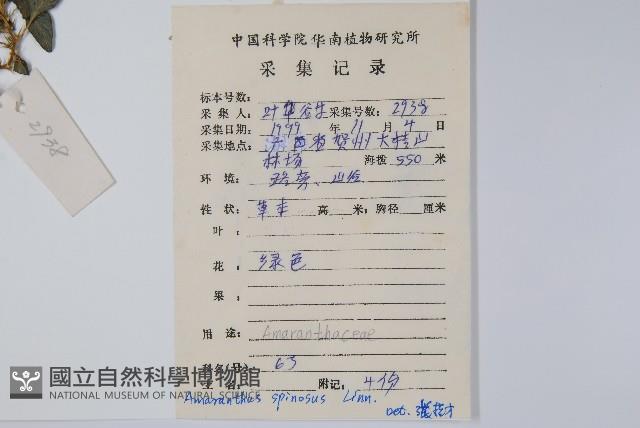 2938
中国科学院华南植物研究所
采集记录
标本号数:
采集人: 叶华谷 采集号数: 2938
采集日期: 1999 年 11 月 4 日
采集地点: 广西省贺州大桂山
林场 海拨 550 米
环境: 路旁、山谷
性状: 草本 高 米; 胸径 厘米
叶:
花: 绿色
果:
用途: Amaranthaceae
科名(号) 63
学名: 附记: 4份
Amaranthus spinosus Linn.
Det.
國立自然科學博物館
NATIONAL MUSEUM OF NATURAL SCIENCE